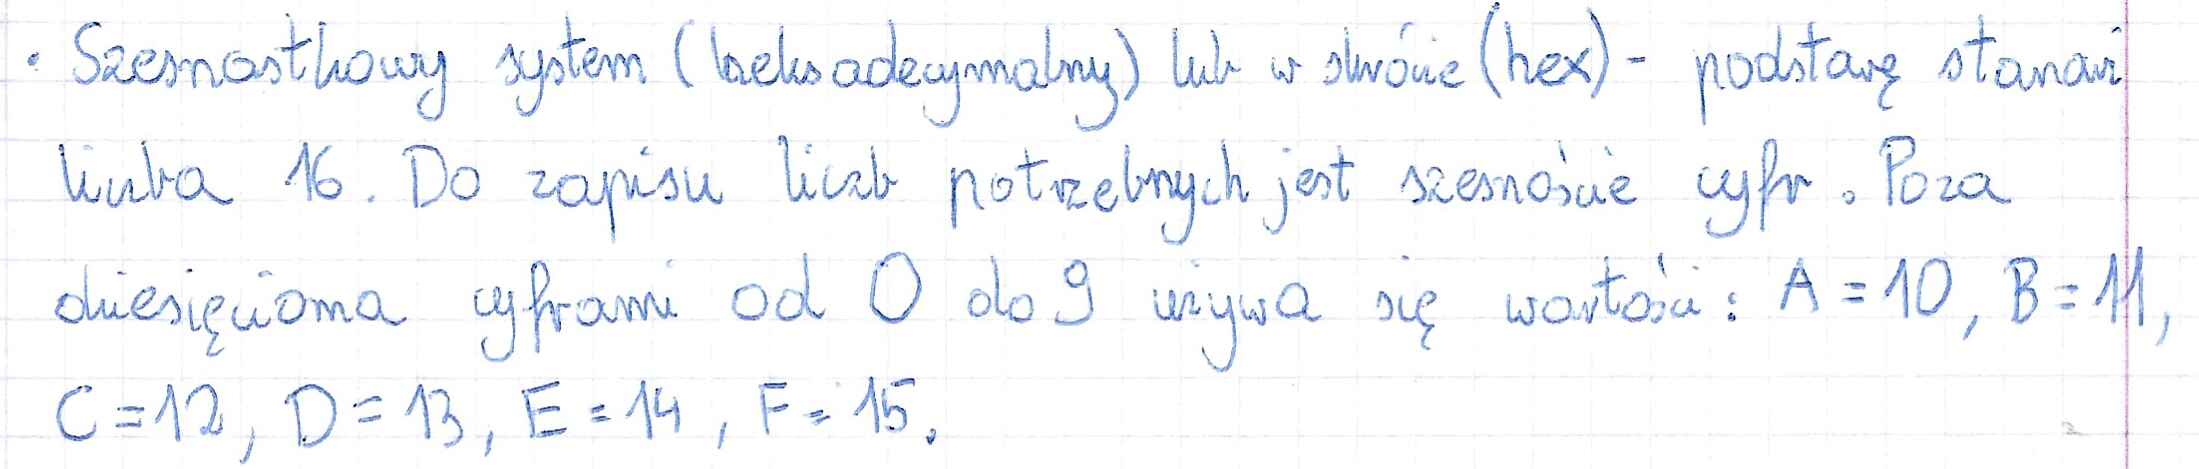 • Szesnastkowy system (heksadecymalny) lub w skrócie (hex) - podstawę stanowi
liczba 16. Do zapisu liczb potrzebnych jest szesnaście cyfr. Poza
dziesięcioma cyframi od 0 do 9 używa się wartości: A = 10, B = 11,
C = 12, D = 13, E = 14, F = 15.